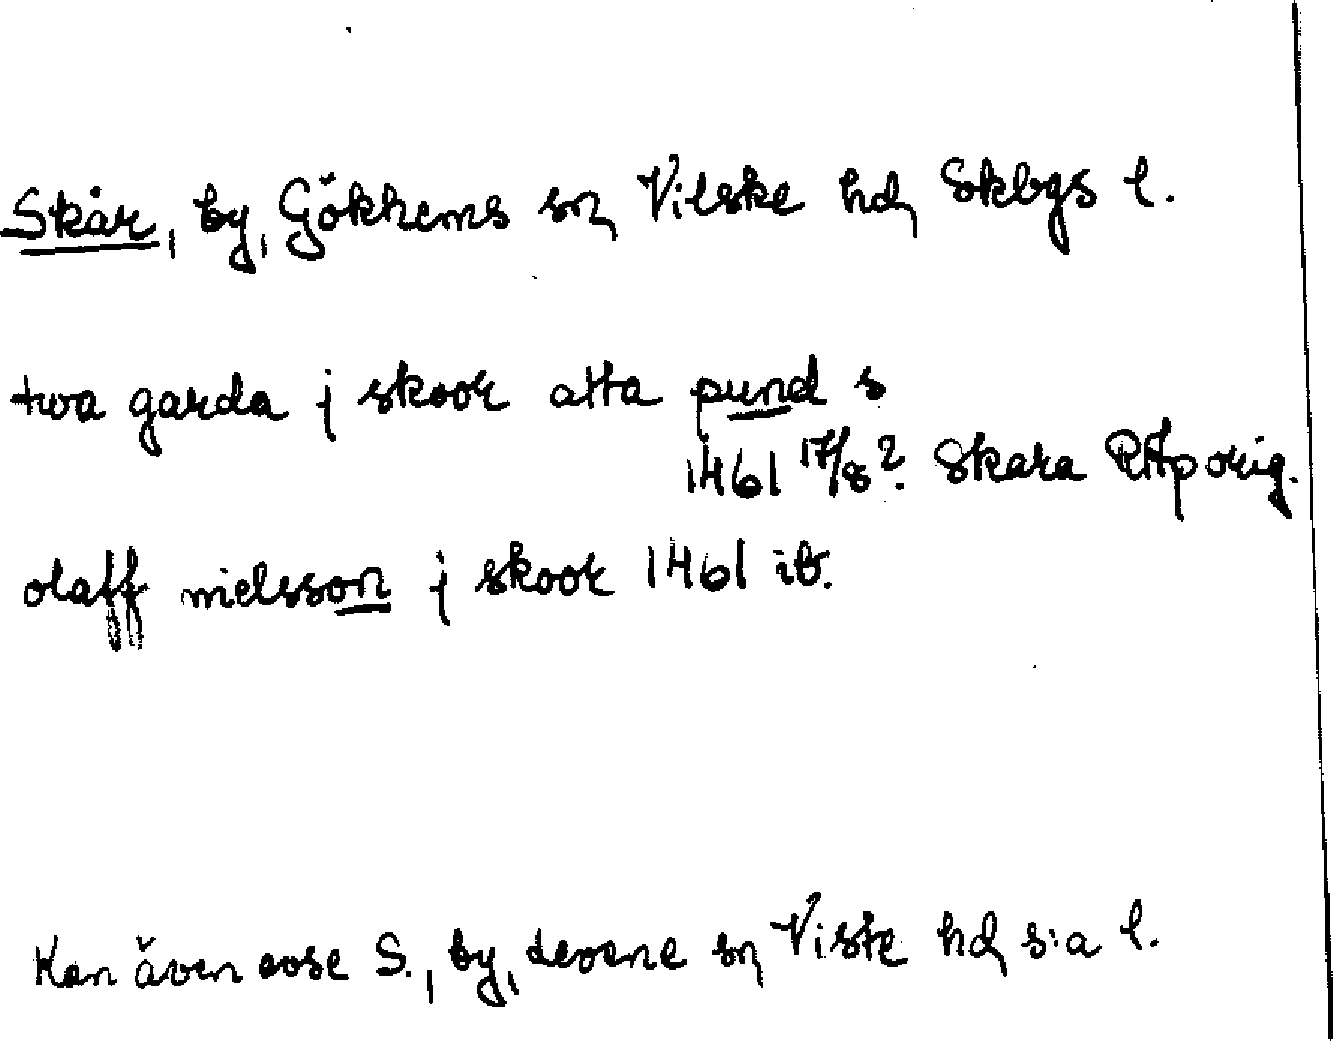 Skår, by, Gökhems sn, Vilske hd, Skbgs l.
twa garda j skoor atta pund s
1461 17/8? Skara RAp orig.
olaff nielsson j skoor 1461 ib.
Kan även avse S., by, Levene sn, Viste hd, s:a l.